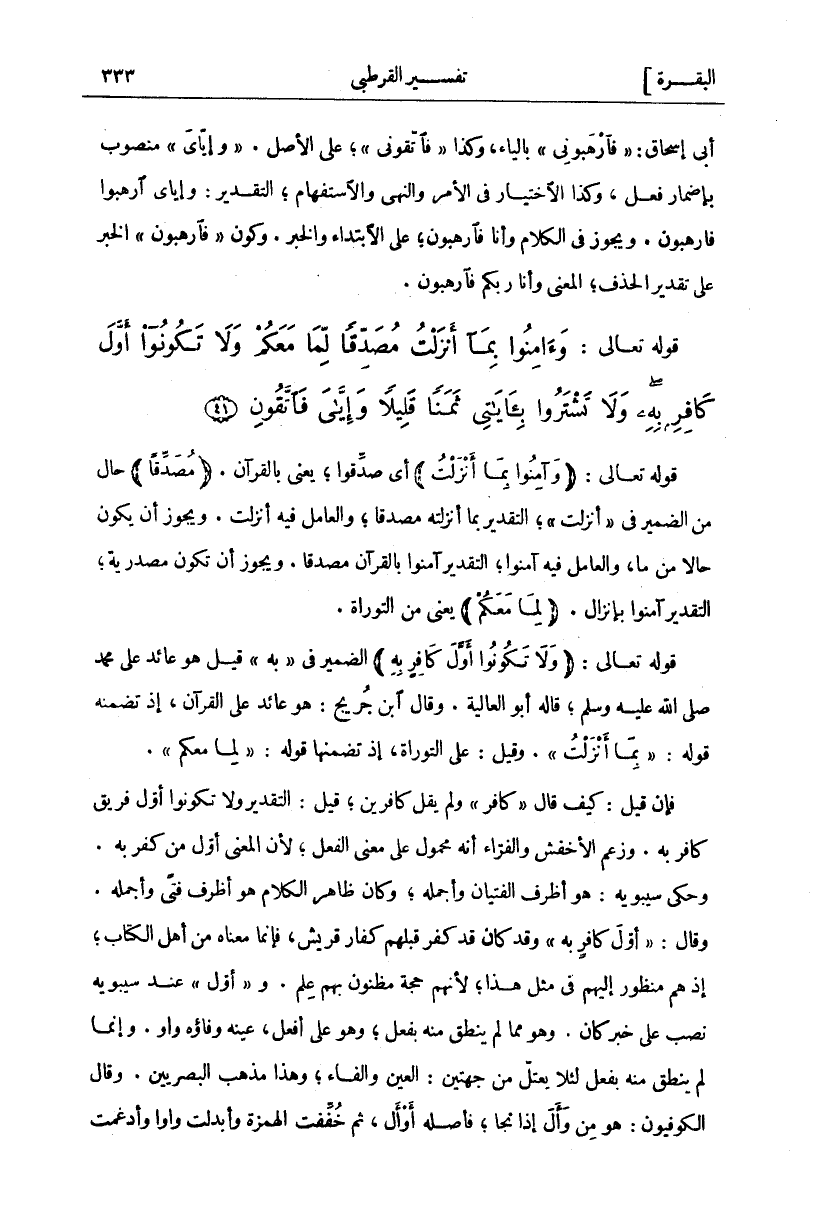 البقرة] تفسير القرطبي ٣٣٣
أبى إسحاق: « فآرْهَبونِي » بالياء، وكذا « فآتّقونى »؛ على الأصل . « وإيّاىَ » منصوب
بإضمار فعل ، وكذا الآختيار فى الأمر والنهى والآستفهام ؛ التقدير : وإياى آرهبوا
فارهبون . ويجوز فى الكلام وأنا فآرهبون؛ على الآبتداء والخبر . وكون « فآرهبون » الخبر
على تقدير الحذف؛ المعنى وأنا ربكم فآرهبون .
قوله تعالى : وَءَامِنُوا بِمَآ أَنزَلْتُ مُصَدِّقًا لِّمَا مَعَكُمْ وَلَا تَكُونُوٓا أَوَّلَ
كَافِرٍ بِهِۦ وَلَا تَشْتَرُوا بِـَٔايَـٰتِى ثَمَنًا قَلِيلًا وَإِيَّـٰىَ فَٱتَّقُونِ (٤١)
قوله تعالى : ﴿وَآمِنُوا بِمَا أَنْزَلْتُ﴾ أى صدِّقوا ؛ يعنى بالقرآن . ﴿مُصَدِّقًا﴾ حال
من الضمير فى « أنزلت »؛ التقدير بما أنزلته مصدقا ؛ والعامل فيه أنزلت . ويجوز أن يكون
حالا من ما، والعامل فيه آمنوا؛ التقدير آمنوا بالقرآن مصدقا . ويجوز أن تكون مصدرية؛
التقدير آمنوا بإنزال . ﴿لِمَا مَعَكُمْ﴾ يعنى من التوراة .
قوله تعالى : ﴿وَلَا تَكُونُوا أَوَّلَ كَافِرٍ بِهِ﴾ الضمير فى « به » قيل هو عائد على محمد
صلى الله عليه وسلم ؛ قاله أبو العالية . وقال آبن جُريج : هو عائد على القرآن ، إذ تضمنه
قوله : « بِمَا أَنْزَلْتُ » . وقيل : على التوراة، إذ تضمنها قوله : « لِمَا معكم » .
فإن قيل : كيف قال « كافر » ولم يقل كافرين ؛ قيل : التقدير ولا تكونوا أوّل فريق
كافر به . وزعم الأخفش والفرّاء أنه محمول على معنى الفعل ؛ لأن المعنى أوّل من كفر به .
وحكى سيبويه : هو أظرف الفتيان وأجمله ؛ وكان ظاهر الكلام هو أظرف فتًى وأجمله .
وقال : « أوّلَ كافرٍ به » وقد كان قد كفر قبلهم كفار قريش، فإنما معناه من أهل الكتاب؛
إذ هم منظور إليهم فى مثل هذا؛ لأنهم حجة مظنون بهم عِلم . و « أول » عند سيبويه
نصب على خبر كان . وهو مما لم ينطق منه بفعل ؛ وهو على أفعل، عينه وفاؤه واو . وإنما
لم ينطق منه بفعل لئلا يعتلّ من جهتين : العين والفاء ؛ وهذا مذهب البصريين . وقال
الكوفيون : هو مِن وَأَلَ إذا نجا ؛ فأصله أَوْأَل ، ثم خُفّفت الهمزة وأبدلت واوا وأدغمت